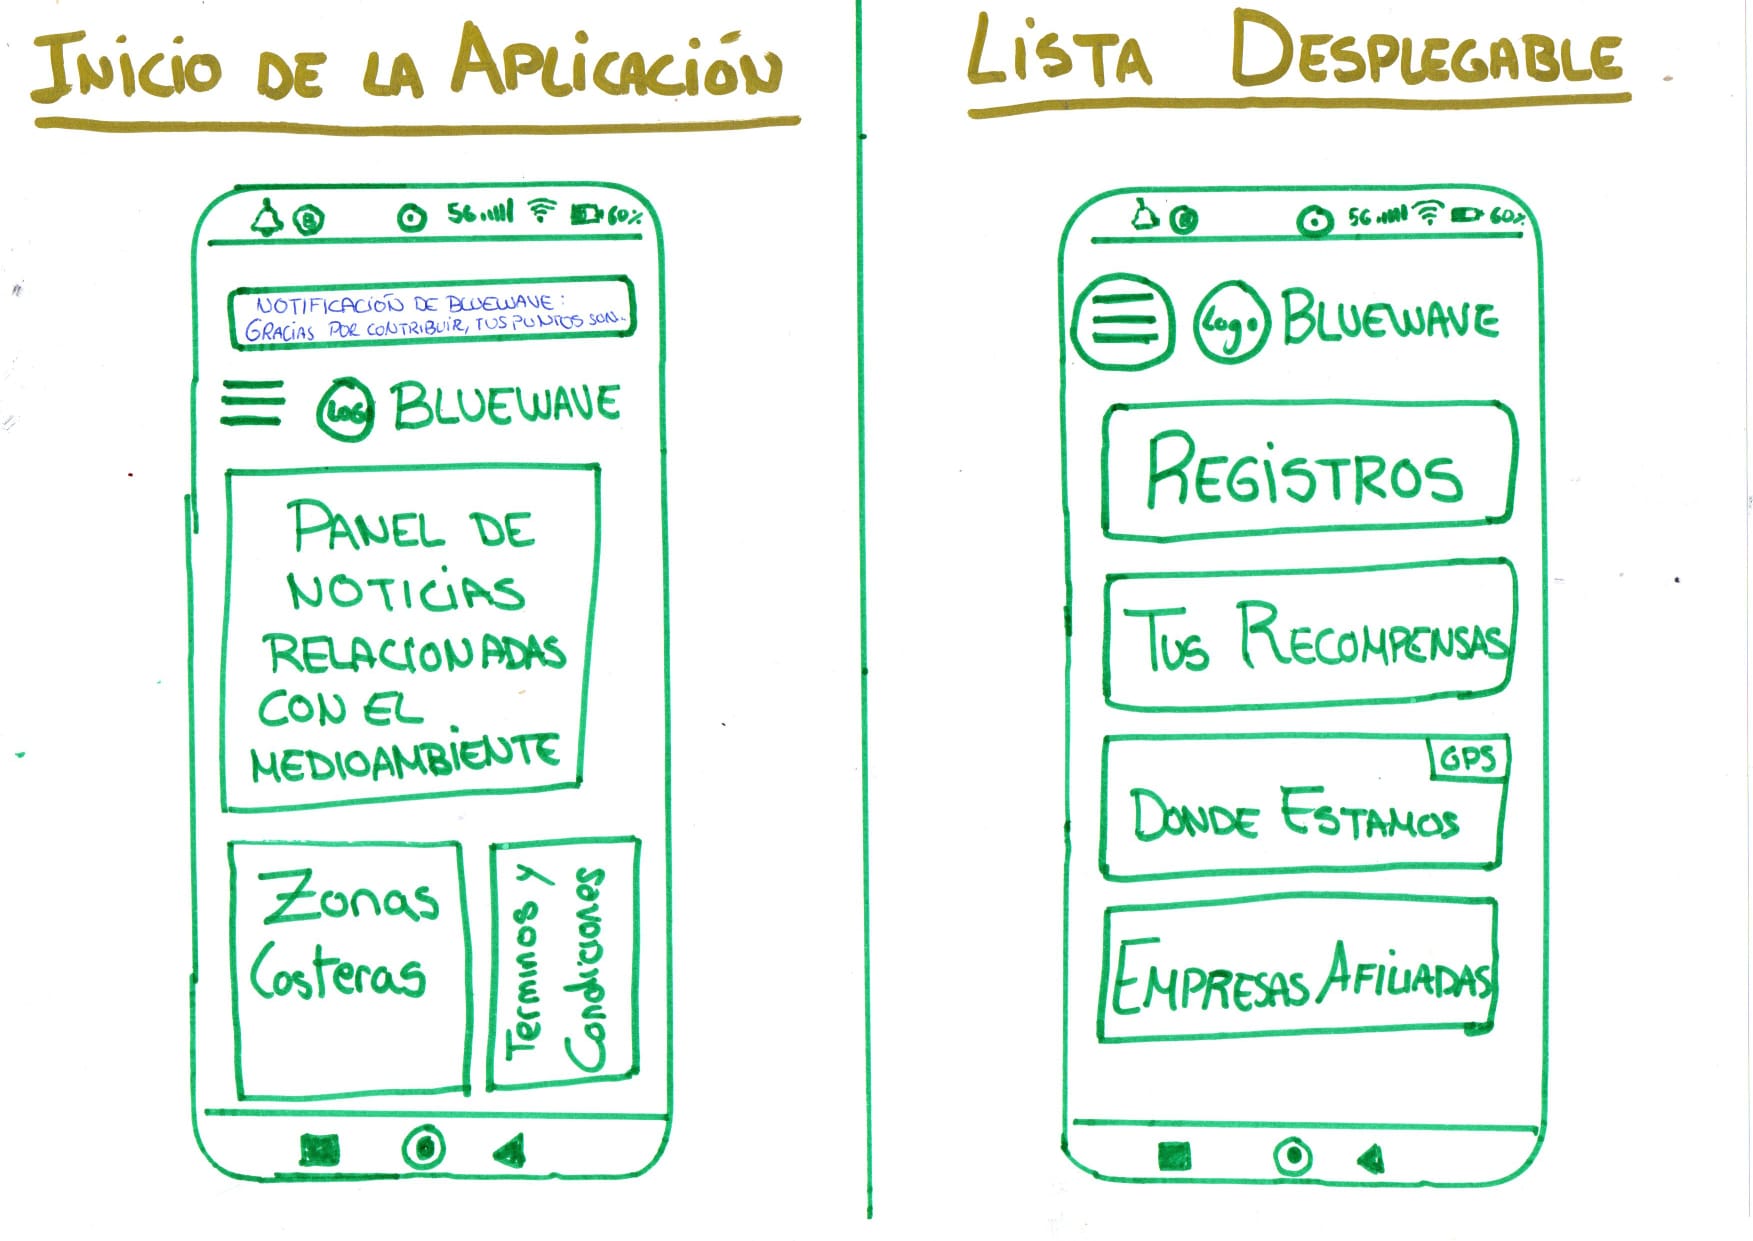 INICIO DE LA APLICACIÓN
5G 60%
NOTIFICACIÓN DE BLUEWAVE:
GRACIAS POR CONTRIBUIR, TUS PUNTOS SON..
LOGO BLUEWAVE
PANEL DE
NOTICIAS
RELACIONADAS
CON EL
MEDIOAMBIENTE
Zonas
Costeras
Terminos y
Condiciones
LISTA DESPLEGABLE
5G 60%
Logo BLUEWAVE
REGISTROS
TUS RECOMPENSAS
GPS
DONDE ESTAMOS
EMPRESAS AFILIADAS